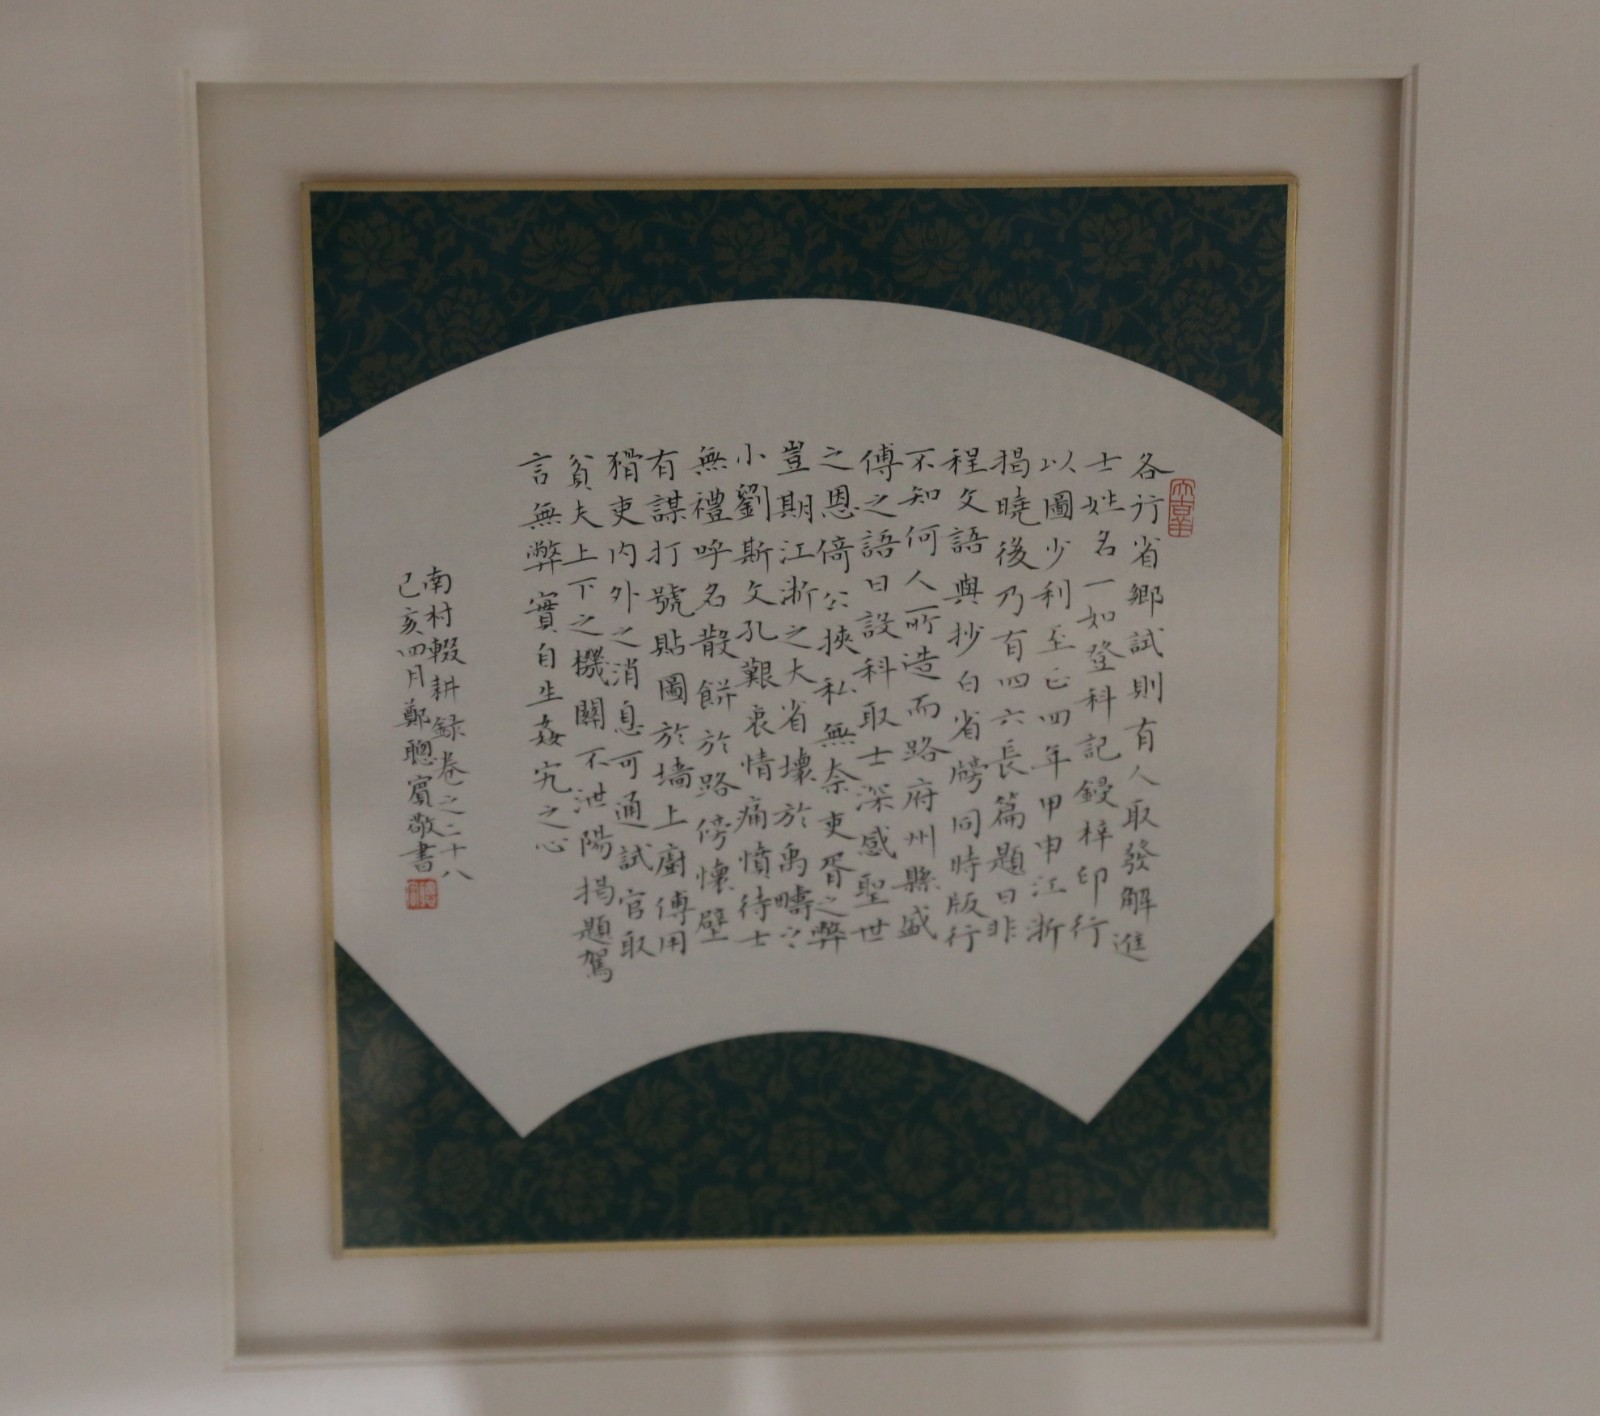 各行省鄉試則有人取發解進
士姓名一如登科記鋟梓印行
以圖少利至正四年甲申江浙
揭曉後乃有四六長篇題曰非
程文語與抄白省牓同時版行
不知何人所造而路府州縣盛
傳之語曰設科取士深感聖世
之恩倚公挾私無奈吏胥之弊
豈期江浙之大省壞於禹疇之
小劉斯文孔艱衷情痛憤待士
無禮呼名散餅於路傍懷壁
有謀打號貼圖於墻上廚傅用
猾吏內外之消息可通試官取
貧夫上下之機關不泄陽揭題駕
言無弊實自生姦宄之心
南村輟耕錄卷之二十八
己亥四月鄭聰賓敬書
大吉羊